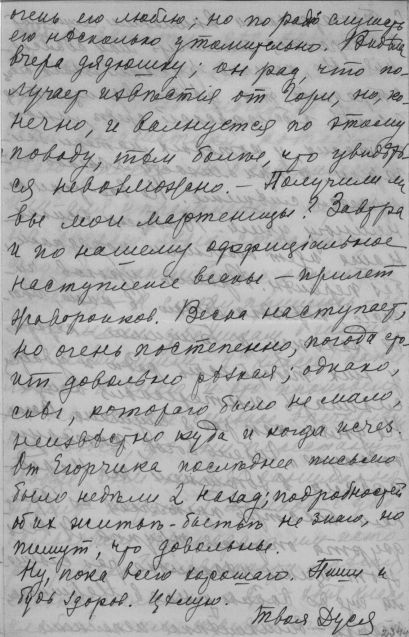 очень его люблю; но по радіо слушать
его нѣсколько утомительно. Видѣла
вчера дядюшку; он рад, что по-
лучает извѣстія от Гори, но, ко-
нечно, и волнуется по этому
поводу, тѣм болѣе, что увидѣть-
ся невозможно. – Получили ли
вы мои мартеницы? Завтра
и по нашему оффиціальное
наступленіе весны – прилет
жаворонков. Весна наступает,
но очень постепенно, погода сто-
ит довольно рѣзкая; однако,
снѣг, котораго было не мало,
неизвѣстно куда и когда исчез.
От Егорчика послѣднее письмо
было недѣли 2 назад; подробностей
об их житьѣ-бытьѣ не знаю, но
пишут, что довольны.
Ну, пока всего хорошаго. Пиши и
будь здоров. Цѣлую.
Твоя Дуся